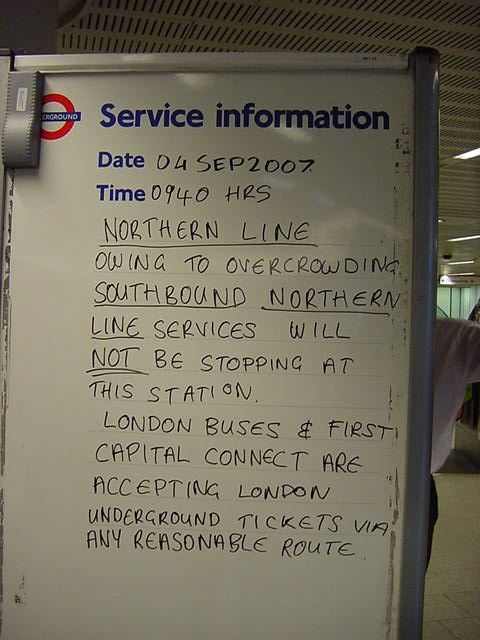 ERGROUND
Service information
Date 04 SEP 2007
Time 0940 HRS
NORTHERN LINE
OWING TO OVERCROWDING
SOUTHBOUND NORTHERN
LINE SERVICES WILL
NOT BE STOPPING AT
THIS STATION.
LONDON BUSES & FIRST
CAPITAL CONNECT ARE
ACCEPTING LONDON
UNDERGROUND TICKETS VIA
ANY REASONABLE ROUTE.